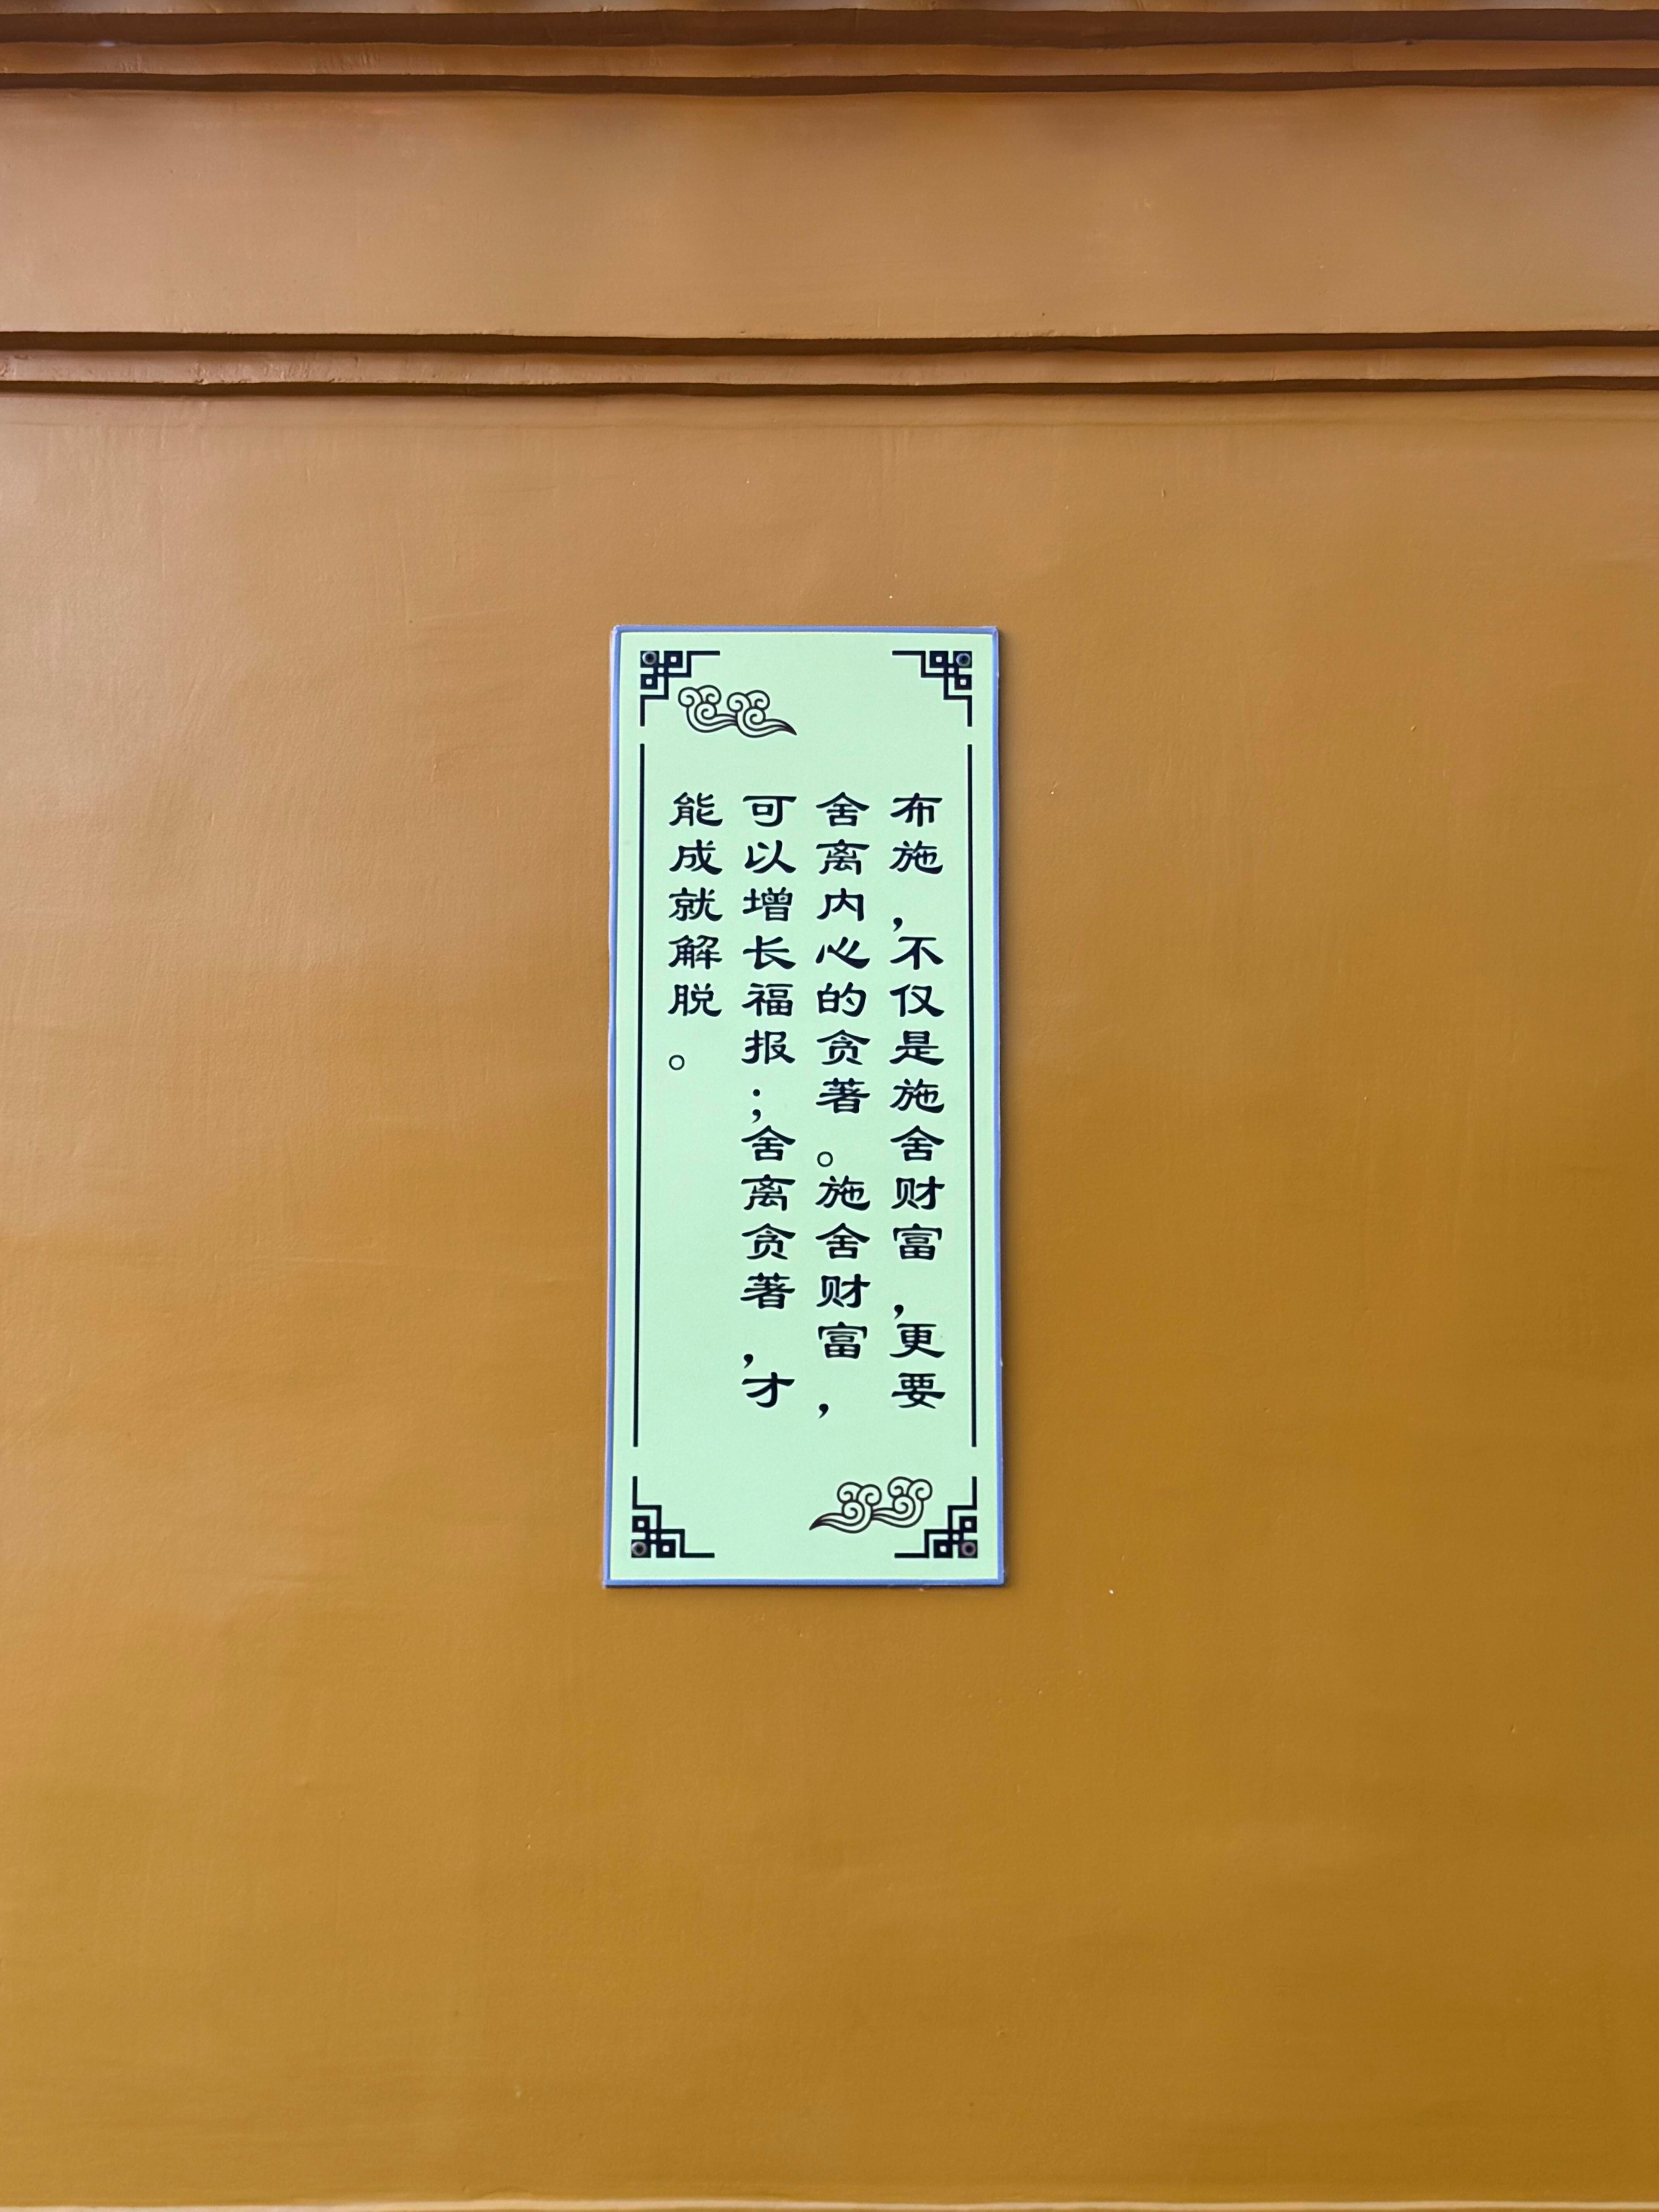 布施,不仅是施舍财富,更要
舍离内心的贪著。施舍财富,
可以增长福报;舍离贪著,才
能成就解脱。